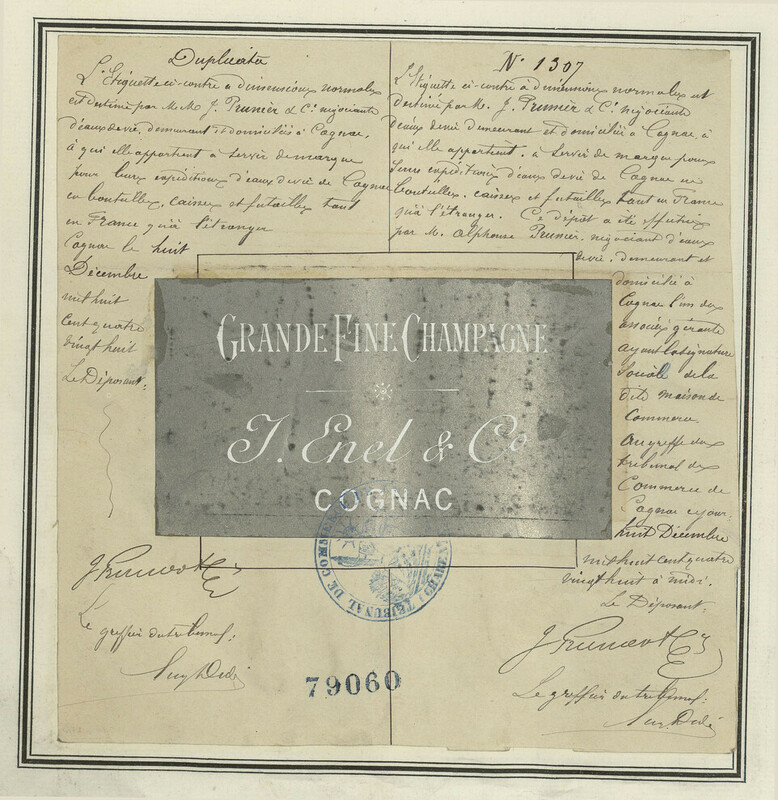 Duplicata
L'Etiquette ci-contre a dimensions normales
est destiné par M.M. J. Prunier & Cie négociants
d'eaux devie, demeurant et domiciliés à Cognac,
à qui elle appartient a servir de marque
pour leurs expéditions d'eaux devie de Cognac
en bouteilles, caisses et futailles tant
en France qu'à l'étranger
Cognac le huit
Décembre
mil huit
cent quatre
vingt huit
Le Déposant:
J Prunier & Cie
Le greffier du tribunal:
No 1307
L'Etiquette ci-contre à dimensions normales est
destiné par M. J. Prunier & Cie négociants
d'eaux devie demeurant et domicilié à Cognac, à
qui elle appartient, à servir de marque pour
leurs expéditions d'eaux devie de Cognac en
bouteilles, caisses et futailles tant en France
qu'à l'étranger. Ce dépôt a été effectué
par M. Alphonse Prunier, négociant d'eaux
devie, demeurant et
domicilié à
Cognac l'un des
associés gérants
ayant la signature
sociale de la
dite maison de
Commerce
au greffe du
tribunal de
Commerce de
Cognac ce jour
huit Décembre
mil huit cent quatre
vingt huit à midi.
Le Déposant:
J Prunier & Cie
Le greffier du tribunal:
GRANDE FINE CHAMPAGNE
J. Enel & Co
COGNAC
TRIBUNAL DE COMMERCE
79060